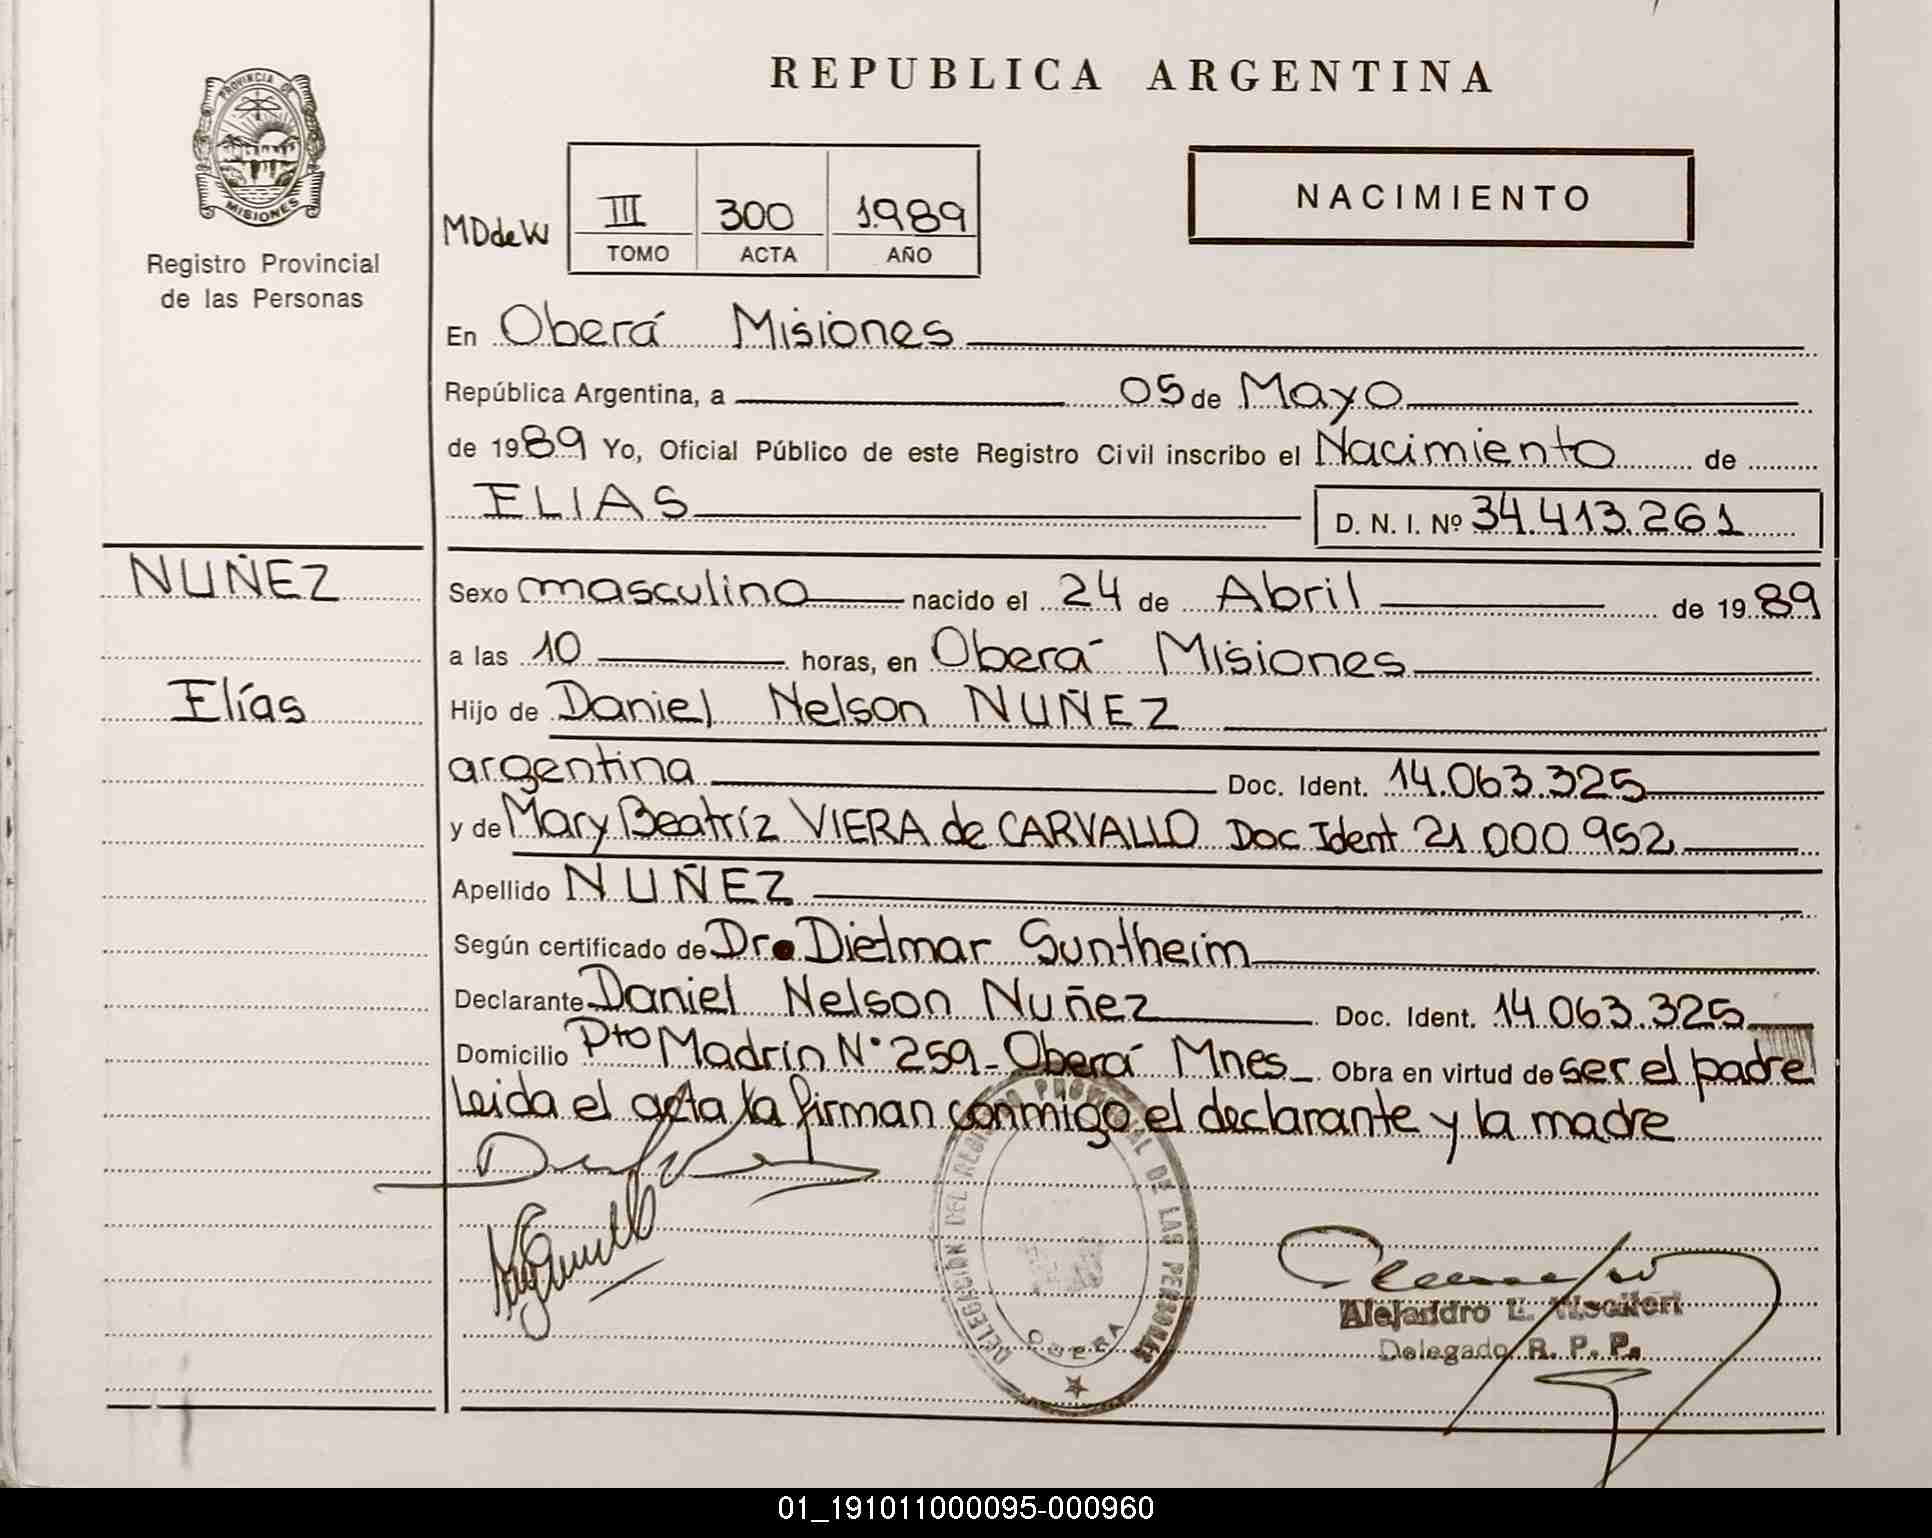 REPUBLICA ARGENTINA
PROVINCIA DE
MISIONES
Registro Provincial
de las Personas
NACIMIENTO
MDdeW
III 300 1.989
TOMO ACTA AÑO
En Oberá Misiones
República Argentina, a 05 de Mayo
de 1989 Yo, Oficial Público de este Registro Civil inscribo el Nacimiento de
ELIAS D. N. I. Nº 34.413.261
NUÑEZ
Elías
Sexo masculino nacido el 24 de Abril de 1989
a las 10 horas, en Oberá Misiones
Hijo de Daniel Nelson NUÑEZ
argentina Doc. Ident. 14.063.325
y de Mary Beatríz VIERA de CARVALLO Doc Ident 21 000 952
Apellido NUÑEZ
Según certificado de Dr. Dietmar Suntheim
Declarante Daniel Nelson Nuñez Doc. Ident. 14 063.325
Domicilio Pto Madrin N° 259 - Oberá Mnes - Obra en virtud de ser el padre
Leida el acta la firman conmigo el declarante y la madre
DELEGACIÓN DEL REGISTRO PROVINCIAL DE LAS PERSONAS
OBERA
Alejandro
Delegado R. P. P.
01_191011000095-000960